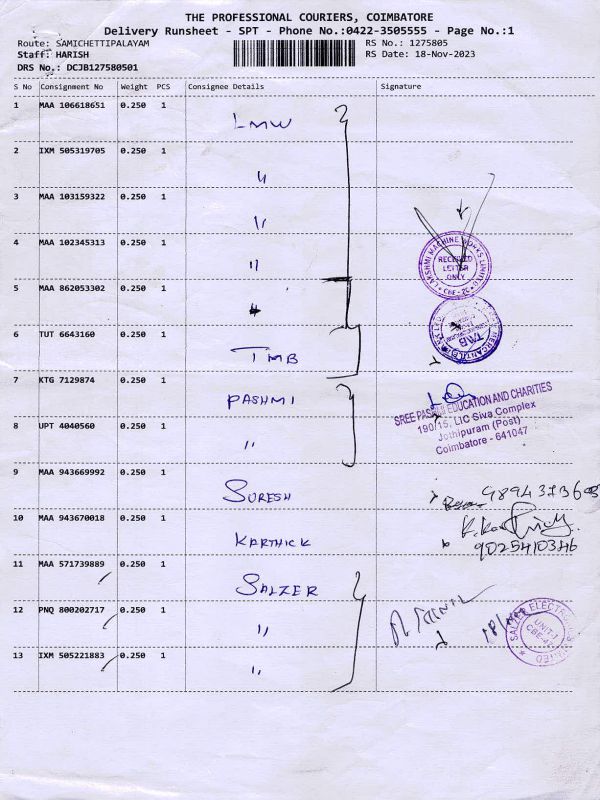 THE PROFESSIONAL COURIERS, COIMBATORE
Delivery Runsheet - SPT - Phone No.:0422-3505555 - Page No.:1
Route: SAMICHETTIPALAYAM
Staff: HARISH
DRS No.: DCJB127580501
RS No.: 1275805
RS Date: 18-Nov-2023
S No Consignment No Weight PCS Consignee Details Signature
1 MAA 106618651 0.250 1 LMW
2 IXM 505319705 0.250 1 "
3 MAA 103159322 0.250 1 "
4 MAA 102345313 0.250 1 "
LAKSHMI MACHINE WORKS LIMITED
RECEIVED
LETTER
ONLY
5 MAA 862053302 0.250 1
6 TUT 6643160 0.250 1 TMB
TMB
7 KTG 7129874 0.250 1 PASHMI
SREE PASHMI EDUCATION AND CHARITIES
190/15, LIC Siva Complex
Jothipuram (Post)
Coimbatore - 641047
8 UPT 4040560 0.250 1 "
9 MAA 943669992 0.250 1 SURESH
10 MAA 943670018 0.250 1 KARTHICK
9025410346
11 MAA 571739889 0.250 1 SALZER
12 PNQ 800202717 0.250 1 "
SALZER ELECTRONICS LIMITED
UNIT-I
13 IXM 505221883 0.250 1 "